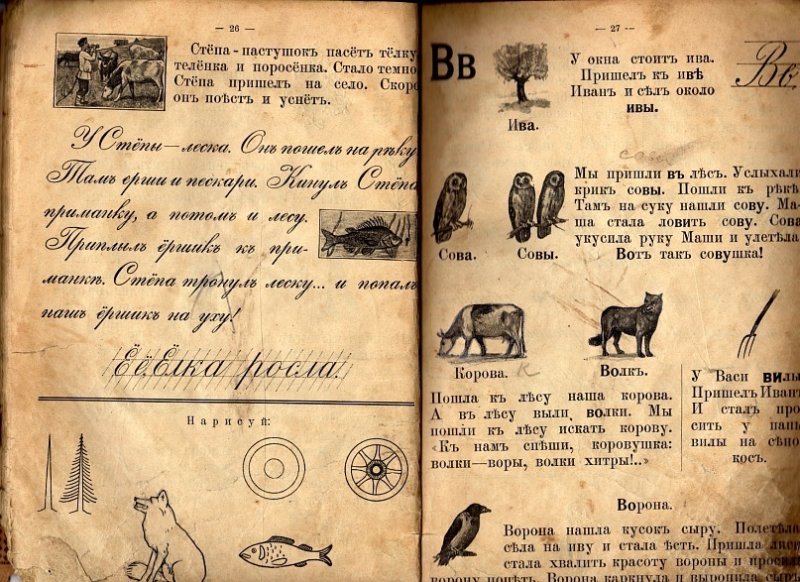 — 26 —
Стёпа-пастушокъ пасётъ тёлку
телёнка и поросёнка. Стало темно
Стёпа пришелъ на село. Скоро
онъ поѣстъ и уснётъ.
У Стёпы—леска. Онъ пошелъ на рѣку
Тамъ ерши и пескари. Кинулъ Стёпа
приманку, а потомъ и лесу.
Приплылъ ёршикъ къ при-
манкѣ. Стёпа тронулъ леску... и попалъ
нашъ ёршикъ на уху!
Ёё,Ёлка росла.
Нарисуй:
— 27 —
Вв
Ива.
У окна стоитъ ива.
Пришелъ къ ивѣ
Иванъ и сѣлъ около
ивы.
Вв
Сова.
Совы.
Мы пришли въ лѣсъ. Услыхали
крик совы. Пошли къ рѣкѣ
Тамъ на суку нашли сову. Ма-
ша стала ловить сову. Сова
укусила руку Маши и улетѣла.
Вотъ такъ совушка!
Корова.
к
Волкъ.
Пошла къ лѣсу наша корова.
А въ лѣсу выли волки. Мы
пошли къ лѣсу искать корову.
«Къ намъ спѣши, коровушка:
волки—воры, волки хитры!..»
У Васи вилы
Пришелъ Иванъ
И сталъ про
сить у папы
вилы на сѣно
косъ.
Ворона.
Ворона нашла кусокъ сыру. Полетѣла
сѣла на иву и стала ѣсть. Пришла лиса
стала хвалить красоту вороны и просила
ворону попѣть. Ворона каркнула и выронила сыръ